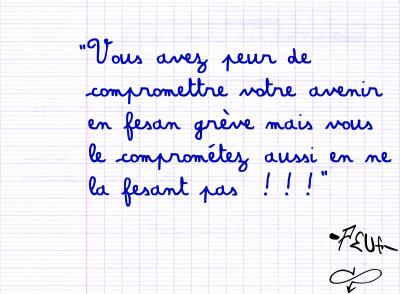 "Vous avez peur de
compromettre votre avenir
en fesan grève mais vous
le comprométez aussi en ne
la fesant pas !!!"